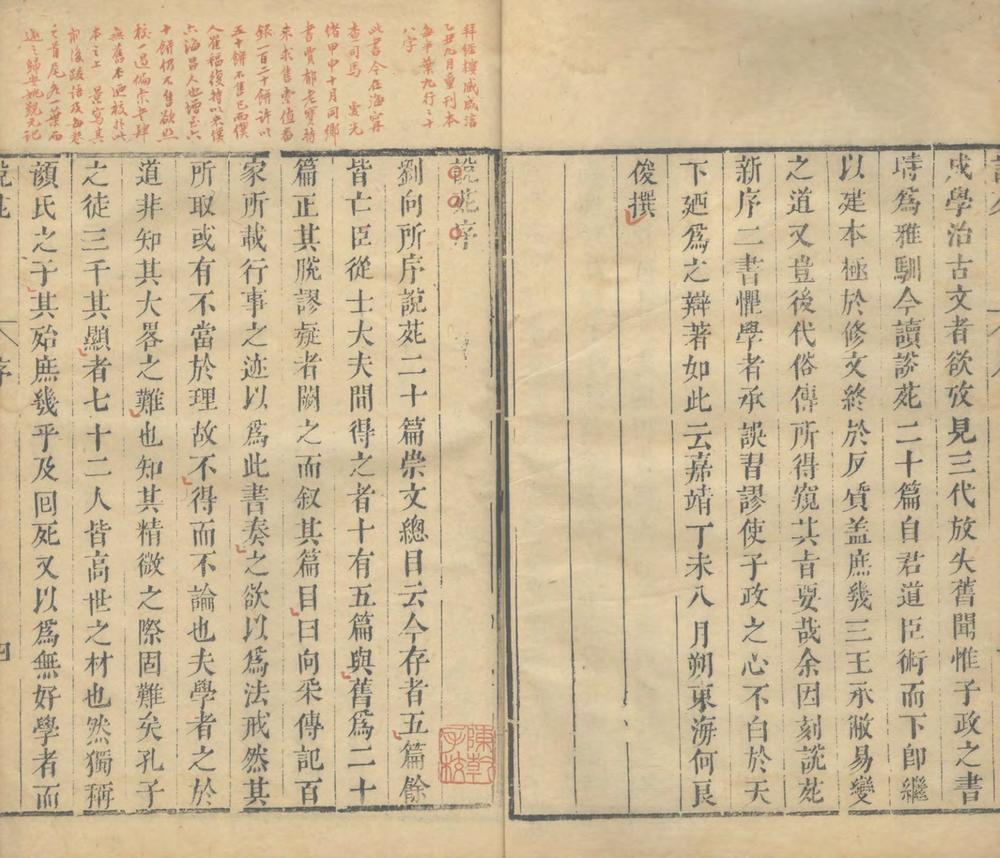 拜經樓藏咸淳
乙丑九月重刊本
每半葉九行行十
八字
此書今在海甯
查司馬 處光
緒甲申十月同鄉
書賈郁老寶持
來求售索值番
銀一百二十餅許以
五十餅不售已而僕
人崔福復持以來僕
亦海昌人也增至六
十餅仍不售欲照
校一過偏索書肆
無舊本迺校於此
本之上 景寫其
前後跋語及每卷
之首尾各一葉而
還之歸安姚覲元記
成學治古文者欲攷見三代放失舊聞惟子政之書
時爲雅馴今讀說苑二十篇自君道臣術而下卽繼
以建本極於修文終於反質盖庶幾三王承敝易變
之道又豈後代俗傳所得窺其旨要哉余因刻說苑
新序二書懼學者承誤習謬使子政之心不白於天
下廼爲之辯著如此云嘉靖丁未八月朔東海何良
俊撰
說苑序
劉向所序說苑二十篇崇文總目云今存者五篇餘
皆亡臣從士大夫間得之者十有五篇與舊爲二十
篇正其脫謬疑者闕之而叙其篇目曰向采傳記百
家所載行事之迹以爲此書奏之欲以爲法戒然其
所取或有不當於理故不得而不論也夫學者之於
道非知其大畧之難也知其精微之際固難矣孔子
之徒三千其顯者七十二人皆高世之材也然獨稱
顔氏之子其殆庶幾乎及回死又以爲無好學者而
說苑
序
四